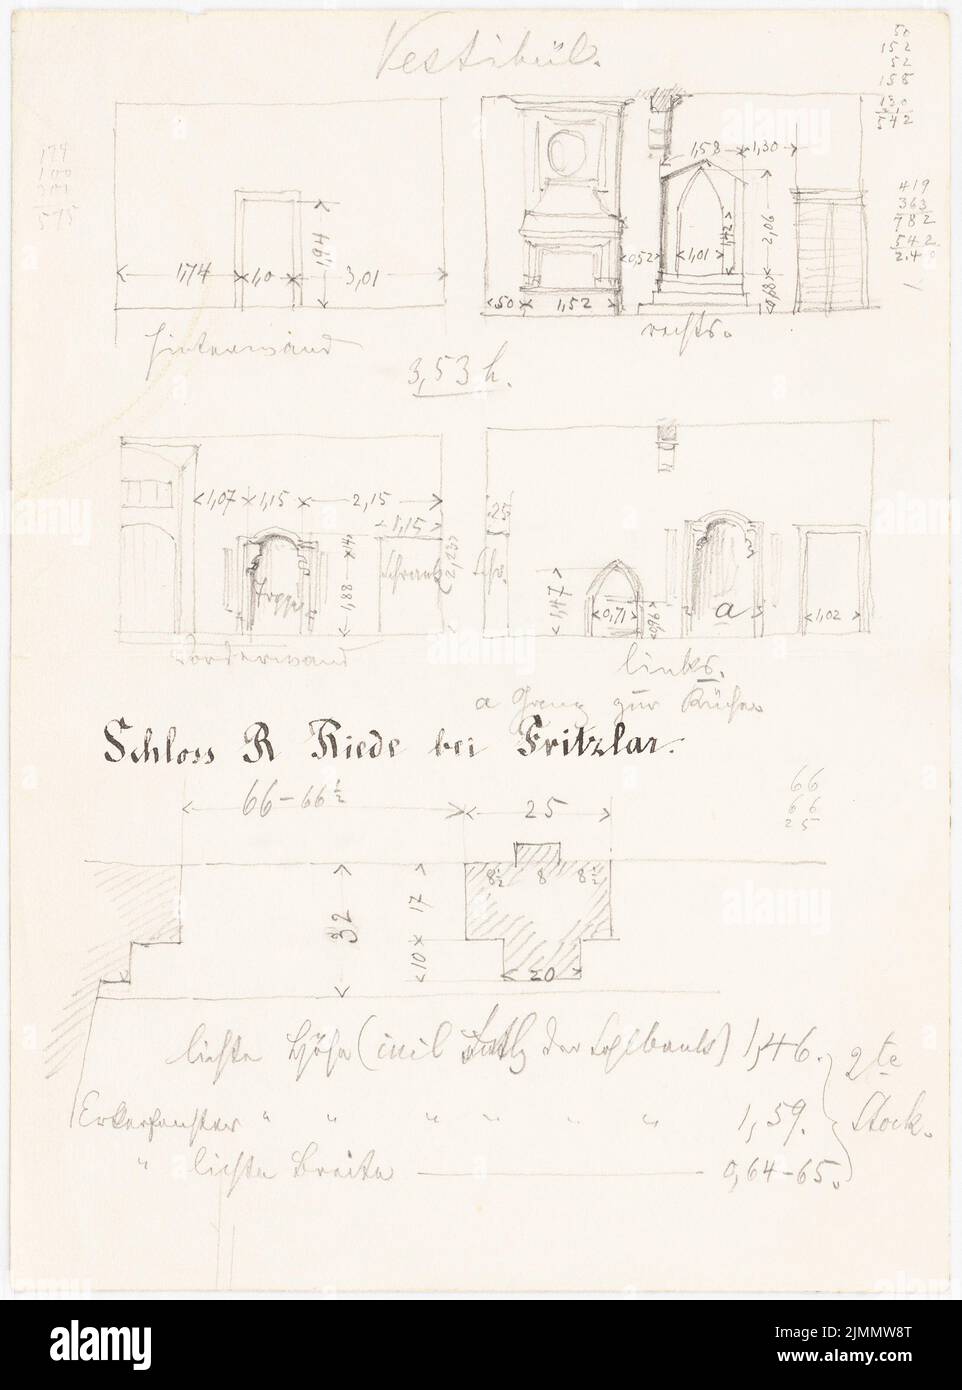 Vestibül.
50
152
52
158
130
542
174
100
301
575
419
363
782
542
2.40
1,74 1,0 3,01
1,94
1,58 1,30
0,52 1,01 1,42 2,06
0,68
50 1,52
Hinterwand
rechts.
3,53 h.
1,07 1,15 2,15
1,15
Treppe
1,88
Schrank
2,23
25
Schr.
1,47 0,71 0,96 a 1,02
Vorderwand
links.
a Gang zur Küche
Schloss R Riede bei Fritzlar.
66-66½ 25
66
66
25
8½ 8 8½
32
10 x 17
20
lichte Höhe (incl der Sohlbank) 1,46.
Erkerfenster " " " " " " 1,59.
" lichte Breite 0,64-65.
2te
Stock.
alamy
Image ID: 2JMMW8T
www.alamy.com